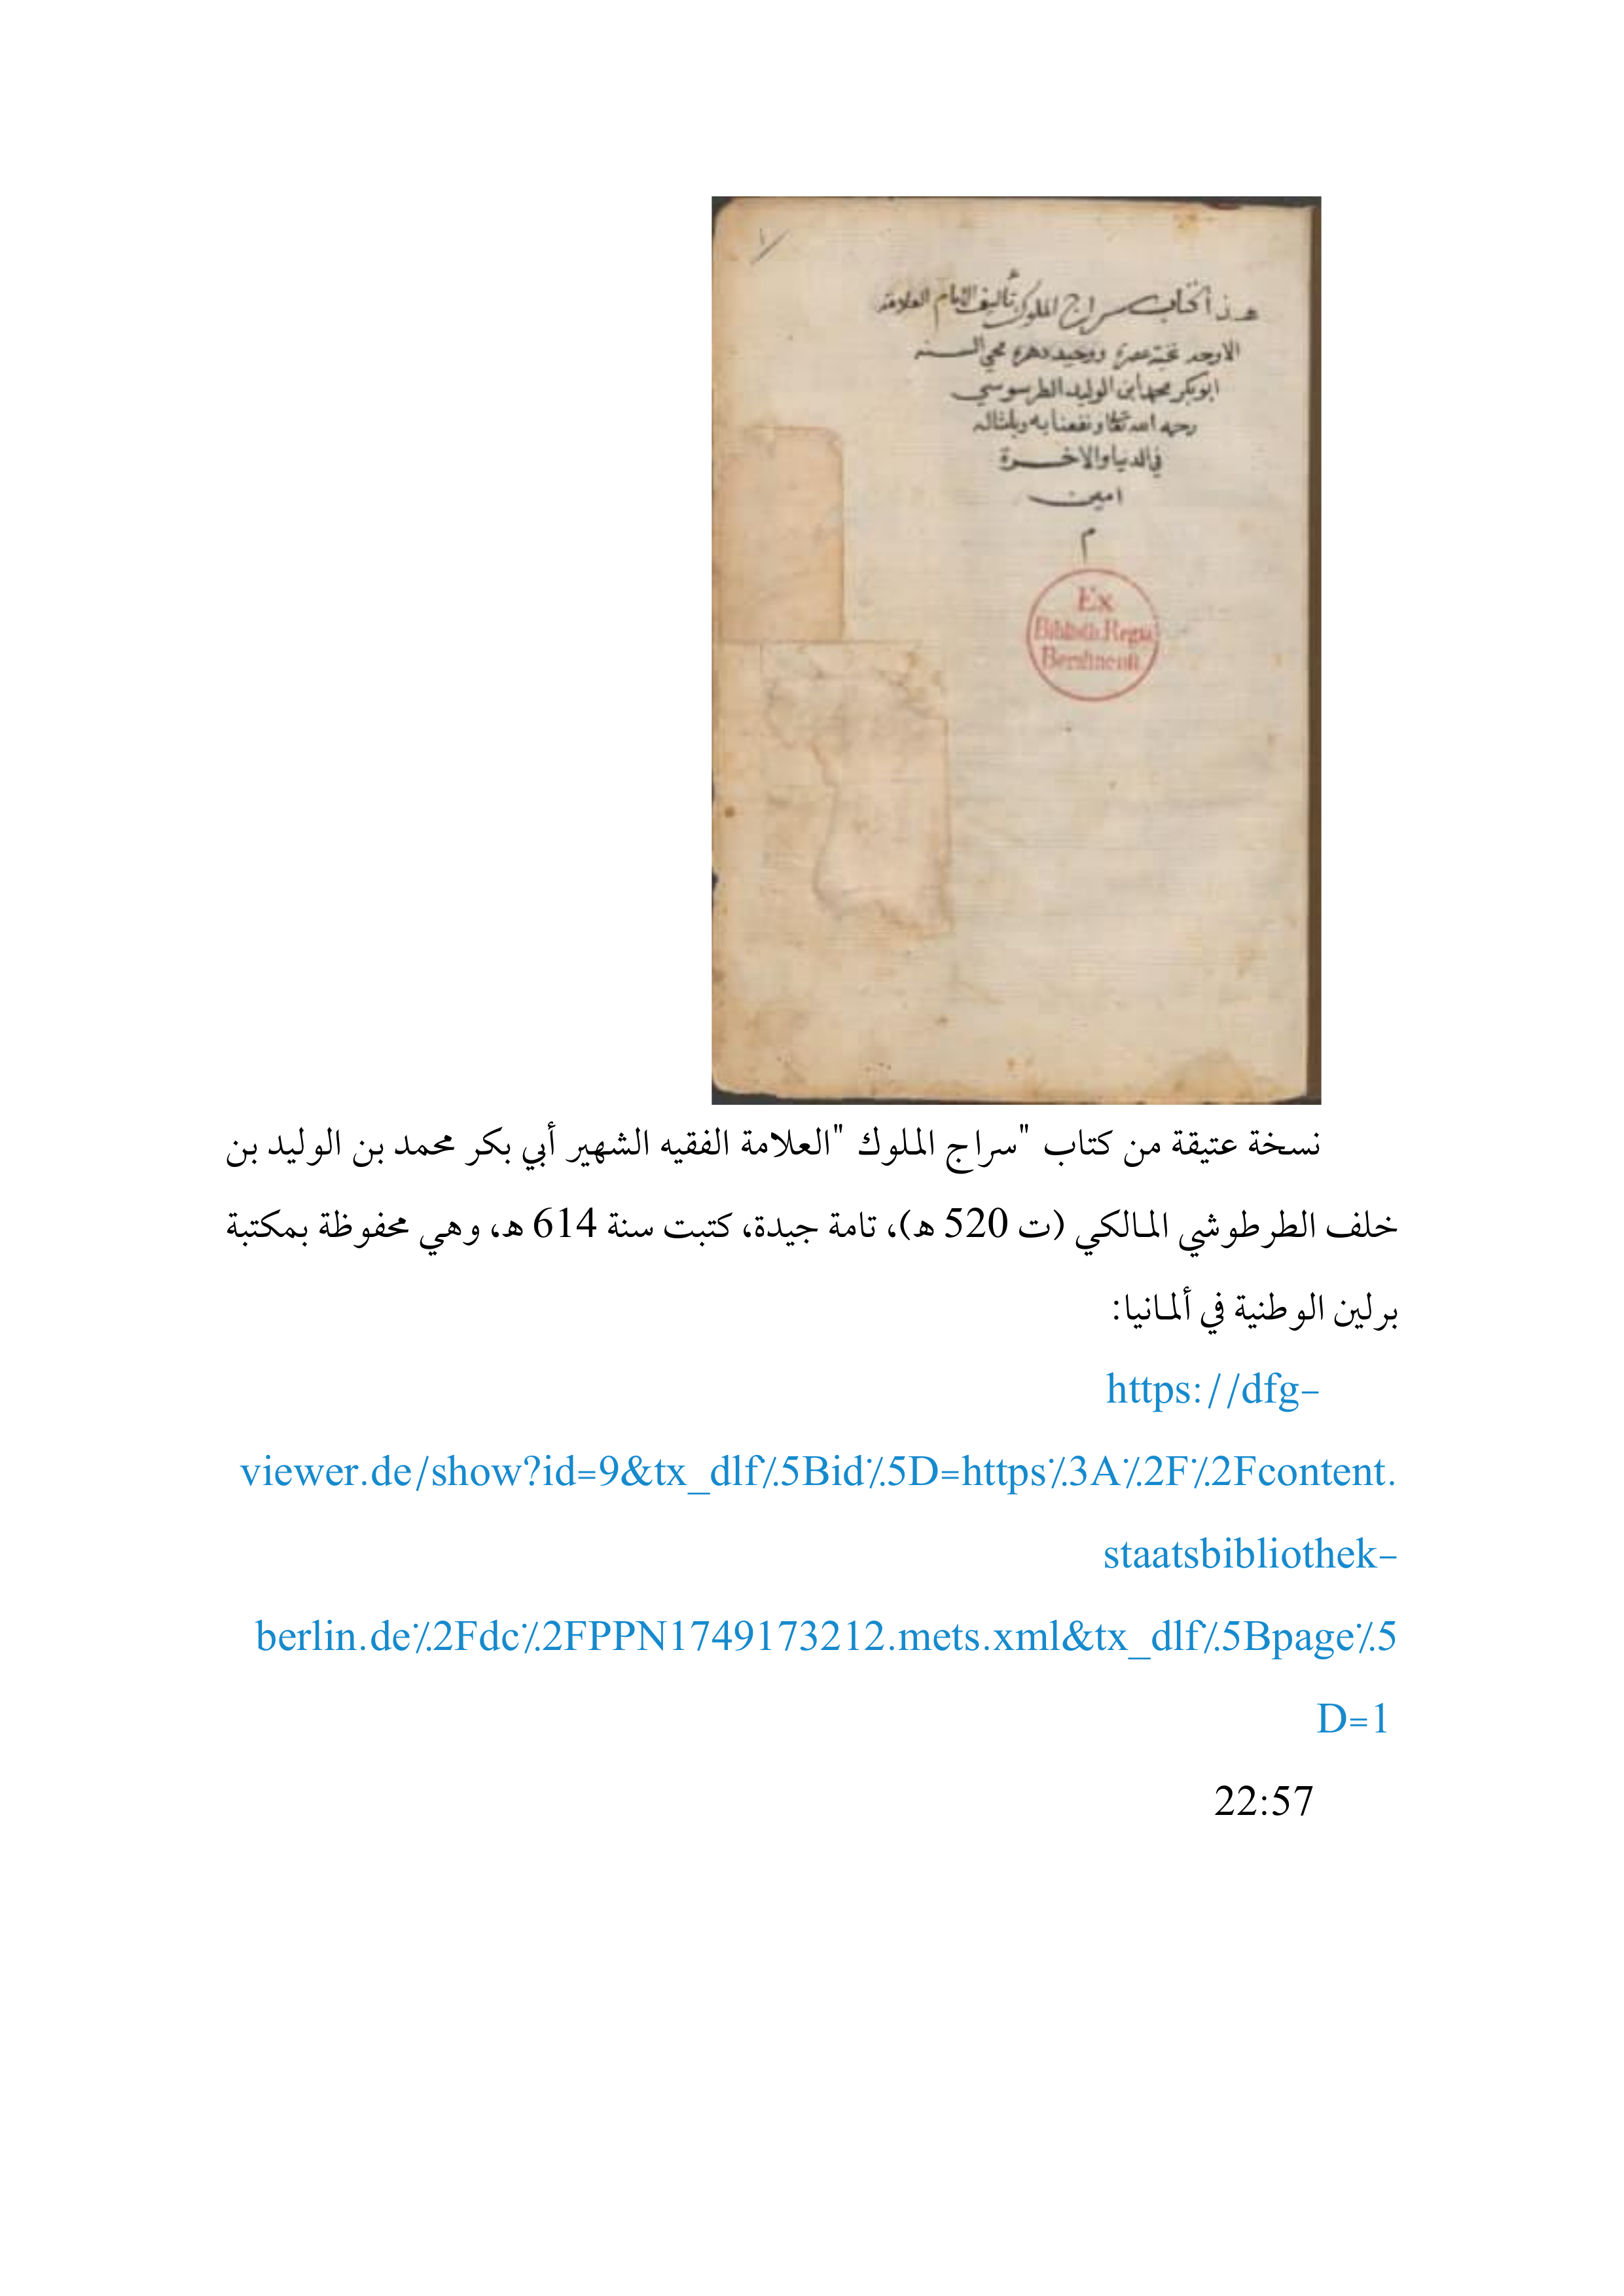 ١
هذا كتاب سراج الملوك تأليف الامام العلامه
الاوحد نخبة عصره ووحيد دهره محي السنه
ابو بكر محمد ابن الوليد الطرسوسي
رحمه الله تعالى ونفعنا به وبامثاله
في الدنيا والاخرة
امين
م
Ex
Biblioth. Regia
Berolinensi.
نسخة عتيقة من كتاب "سراج الملوك "العلامة الفقيه الشهير أبي بكر محمد بن الوليد بن
خلف الطرطوشي المالكي (ت 520 هـ)، تامة جيدة، كتبت سنة 614 هـ، وهي محفوظة بمكتبة
برلين الوطنية في ألمانيا:
https://dfg-
viewer.de/show?id=9&tx_dlf%5Bid%5D=https%3A%2F%2Fcontent.
staatsbibliothek-
berlin.de%2Fdc%2FPPN1749173212.mets.xml&tx_dlf%5Bpage%5
D=1
22:57